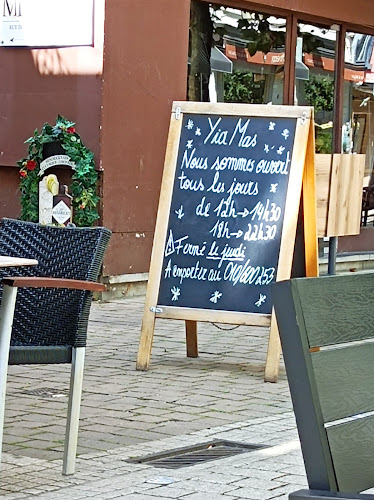 Yia Mas
Nous sommes ouvert
tous les jours
de 12h → 14h30
18h → 22h30
⚠ Fermé le jeudi
A emporter au 010/600 253
M